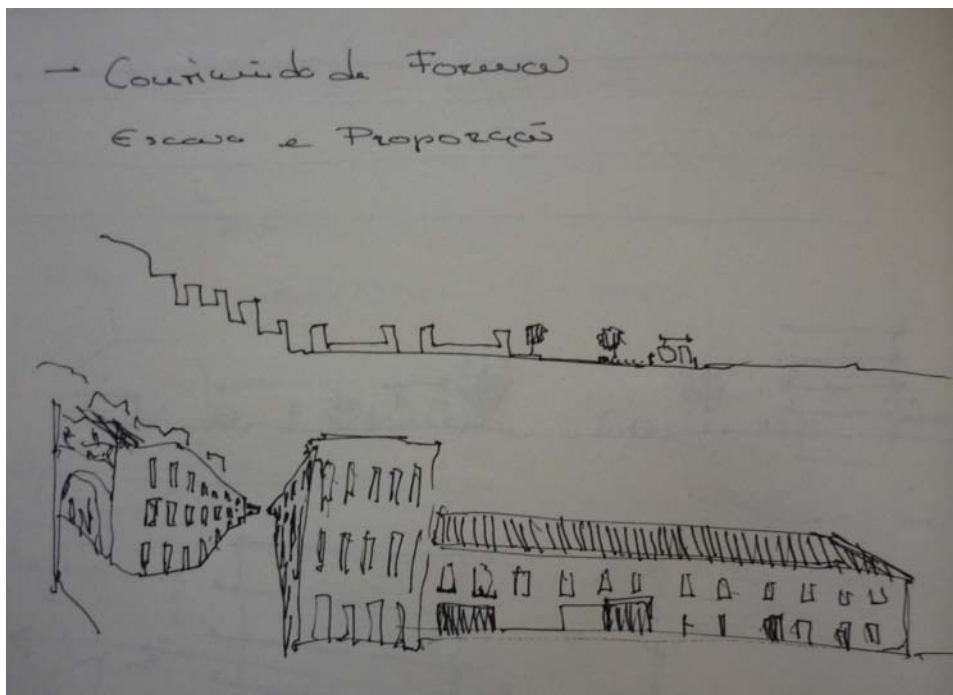 → Continuidade de Formas
Escala e Proporção